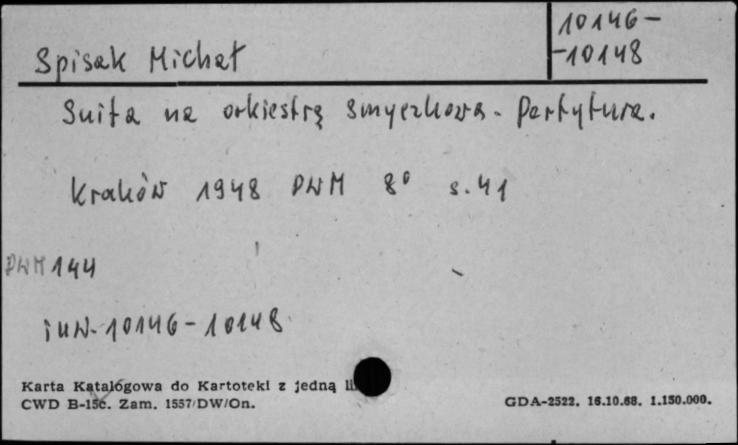 10146-
-10148
Spisak Michał
Suita na orkiestrę smyczkową. Partytura.
Kraków 1948 PWM 8° s. 41
PWM 144
inw. 10146-10148
Karta Katalogowa do Kartoteki z jedną
CWD B-15c. Zam. 1557/DW/On.
GDA-2522. 16.10.68. 1.150.000.